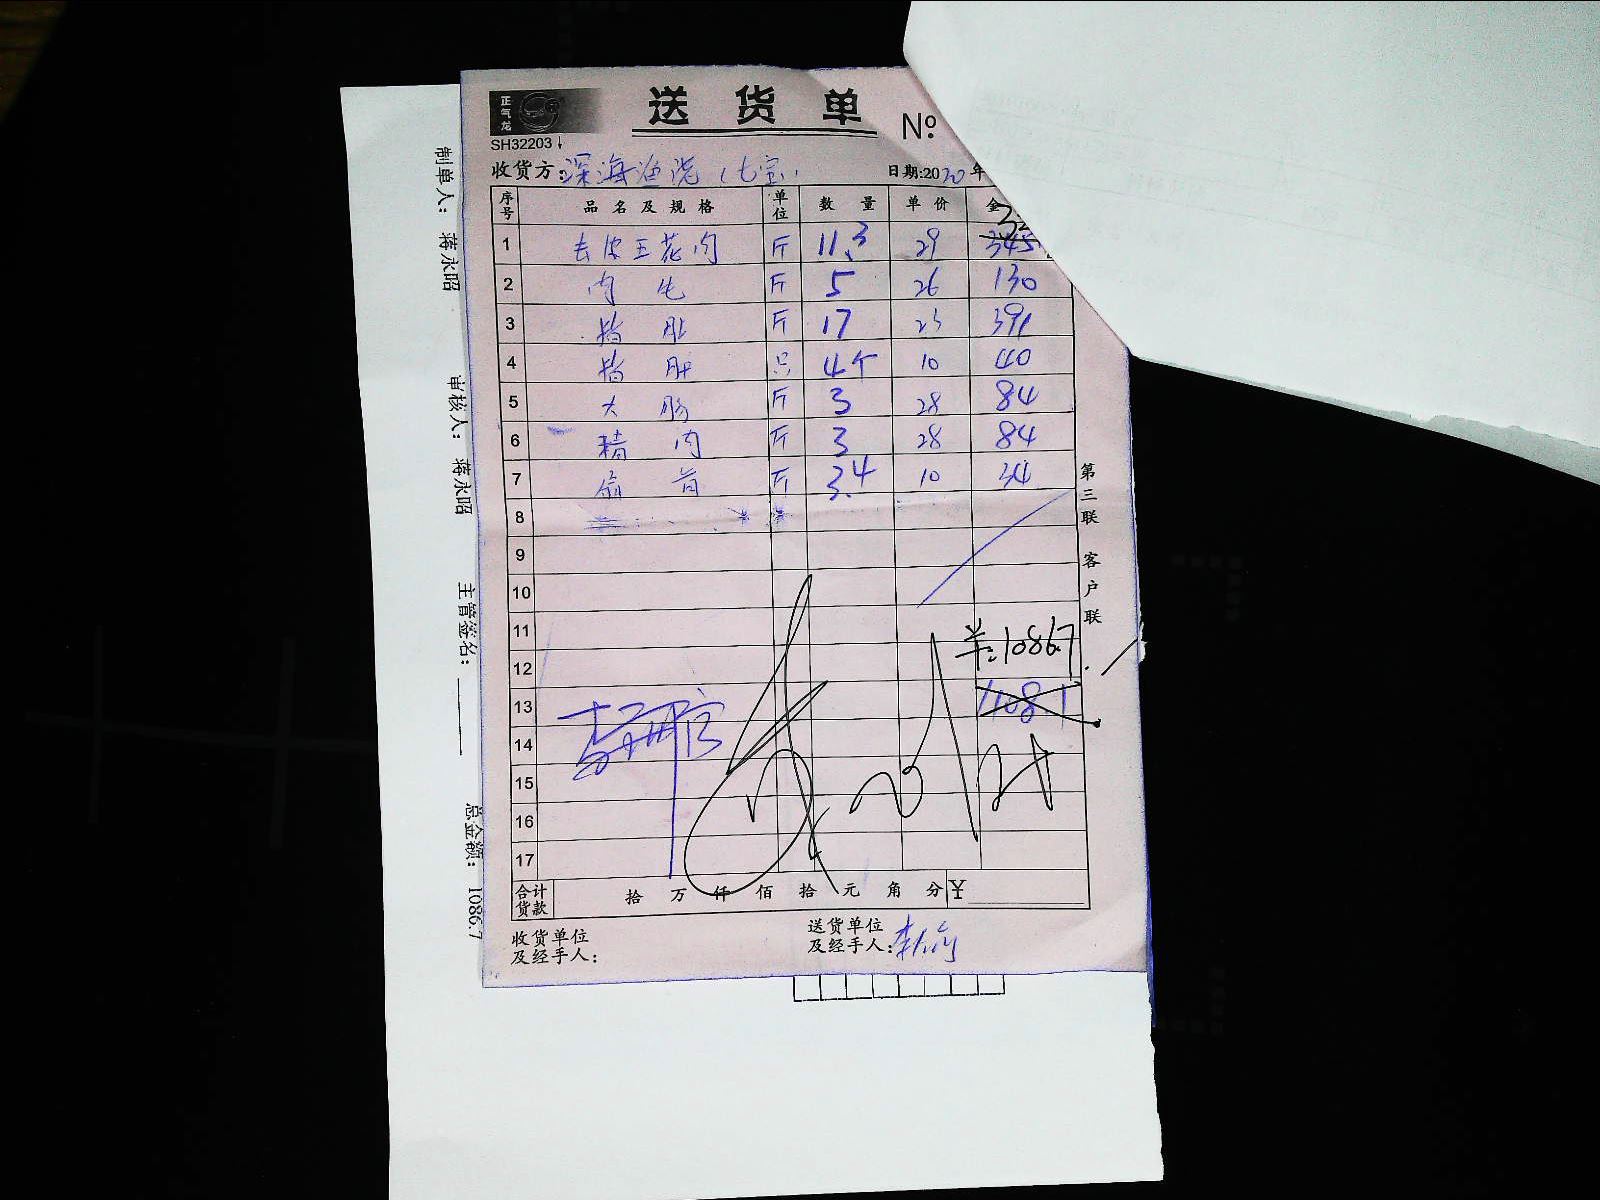 正气龙
送货单
№
SH32203
收货方:深海渔港(七宝)
日期:2020年
序号 品名及规格 单位 数量 单价 金
1 去皮五花肉 斤 11.3 29 345
2 肉 斤 5 26 130
3 猪肚 斤 17 23 391
4 猪肚 只 4个 10 40
5 大肠 斤 3 28 84
6 精肉 斤 3 28 84
7 斤 3.4 10 34
8
9
10
11
¥:1086.7
12
13 1108.1
14
15
16
17
合计货款 拾 万 仟 佰 拾 元 角 分 ¥
收货单位及经手人:
送货单位及经手人:
第三联 客户联
制单人: 蒋永昭
审核人: 蒋永昭
主管签名:
总金额: 1086.7